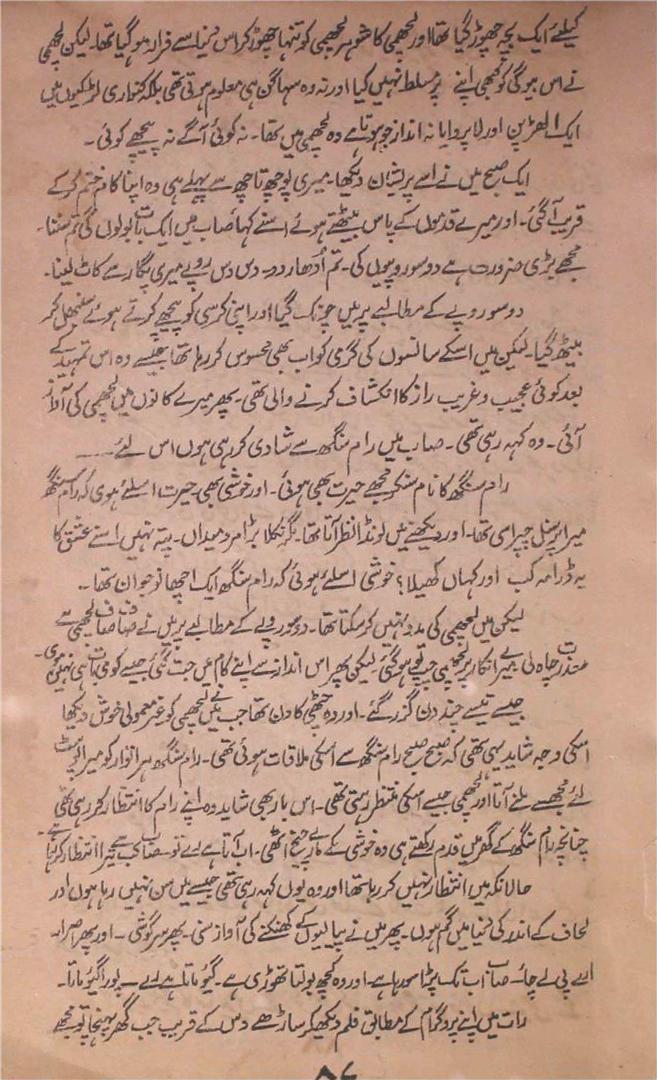 کیلئے ایک بچہ چھوڑ گیا تھا اور لچھمی کا شوہر لچھمی کو تنہا چھوڑ کر اس دنیا سے فرار ہو گیا تھا۔ لیکن لچھمی
نے اس بیوگی کو کبھی اپنے پر مسلط نہیں کیا اور نہ وہ سہاگن ہی معلوم ہوتی تھی بلکہ کنواری لڑکیوں میں
ایک الھڑ پن اور لاپروایانہ انداز جو ہوتا ہے وہ لچھمی میں تھا۔ نہ کوئی آگے نہ پیچھے کوئی۔
ایک صبح میں نے اسے پریشان دیکھا۔ میری پوچھ تاچھ سے پہلے ہی وہ اپنا کام ختم کر کے
قریب آ گئی۔ اور میرے قدموں کے پاس بیٹھتے ہوئے اسنے کہا صاب میں ایک بات بولوں گی تم سننا۔
مجھے بڑی ضرورت ہے دو سو روپیوں کی۔ تم اُدھار دو۔ دس دس روپے میری پگار سے کاٹ لینا۔
دو سو روپے کے مطالبے پر میں چونک گیا اور اپنی کرسی کو پیچھے کرتے ہوئے سنبھل کر
بیٹھ گیا۔ لیکن میں اسکے سانسوں کی گرمی کو اب بھی محسوس کر رہا تھا جیسے وہ اس تمہید کے
بعد کوئی عجیب و غریب راز کا انکشاف کرنے والی تھی۔ پھر میرے کانوں میں لچھمی کی آواز
آئی۔ وہ کہہ رہی تھی۔ صاب میں رام سنگھ سے شادی کر رہی ہوں اس لئے ۔۔۔۔
رام سنگھ کا نام سنکر مجھے حیرت بھی ہوئی۔ اور خوشی بھی۔ حیرت اسلئے ہوی کہ رام سنگھ
میرا پرسنل چپراسی تھا۔ اور دیکھنے میں لونڈا نظر آتا تھا۔ مگر نکلا بڑا مرد میداں۔ پتہ نہیں اسنے عشق کا
یہ ڈرامہ کب اور کہاں کھیلا؟ خوشی اسلئے ہوئی کہ رام سنگھ ایک اچھا نوجوان تھا۔
لیکن میں لچھمی کی مدد نہیں کر سکتا تھا۔ دو سو روپے کے مطالبے پر میں نے صاف صاف لچھمی سے
معذرت چاہ لی۔ میرے انکار پر لچھمی چپ ہو گئی۔ لیکن پھر اس انداز سے اپنے کام میں جٹ گئی جیسے کوئی بات ہی نہیں ہوی۔
جیسے تیسے چند دن گزر گئے۔ اور وہ چھٹی کا دن تھا جب میں نے لچھمی کو غیر معمولی خوش دیکھا
اسکی وجہ شاید یہی تھی کہ صبح صبح رام سنگھ سے اسکی ملاقات ہوئی تھی۔ رام سنگھ ہر اتوار کو میرا پوسٹ
لئے مجھ سے ملنے آتا اور لچھمی جیسے اسکی منتظر رہتی تھی۔ اس بار بھی شاید وہ اپنے رام کا انتظار کر رہی تھی
چنانچہ رام سنگھ کے گھر میں قدم رکھتے ہی وہ خوشی کے مارے چیخ اٹھی۔ اب آتا ہے لے تو۔ صاب کب سے تیرا انتظار کرتا ہے۔
حالانکہ میں انتظار نہیں کر رہا تھا اور وہ یوں کہہ رہی تھی جیسے میں سن نہیں رہا ہوں اور
لحاف کے اندر کی دنیا میں گم ہوں۔ پھر میں نے پیالیوں کے کھنکنے کی آواز سنی۔ پھر سرگوشی۔ اور پھر اصرار
ارے پی لے چاء۔ صاب اب تک پڑا سو رہا ہے۔ اور وہ کچھ بولتا تھوڑی ہے۔
رات میں اپنے پروگرام کے مطابق فلم دیکھ کر ساڑھے دس کے قریب جب گھر پہنچا تو مجھے